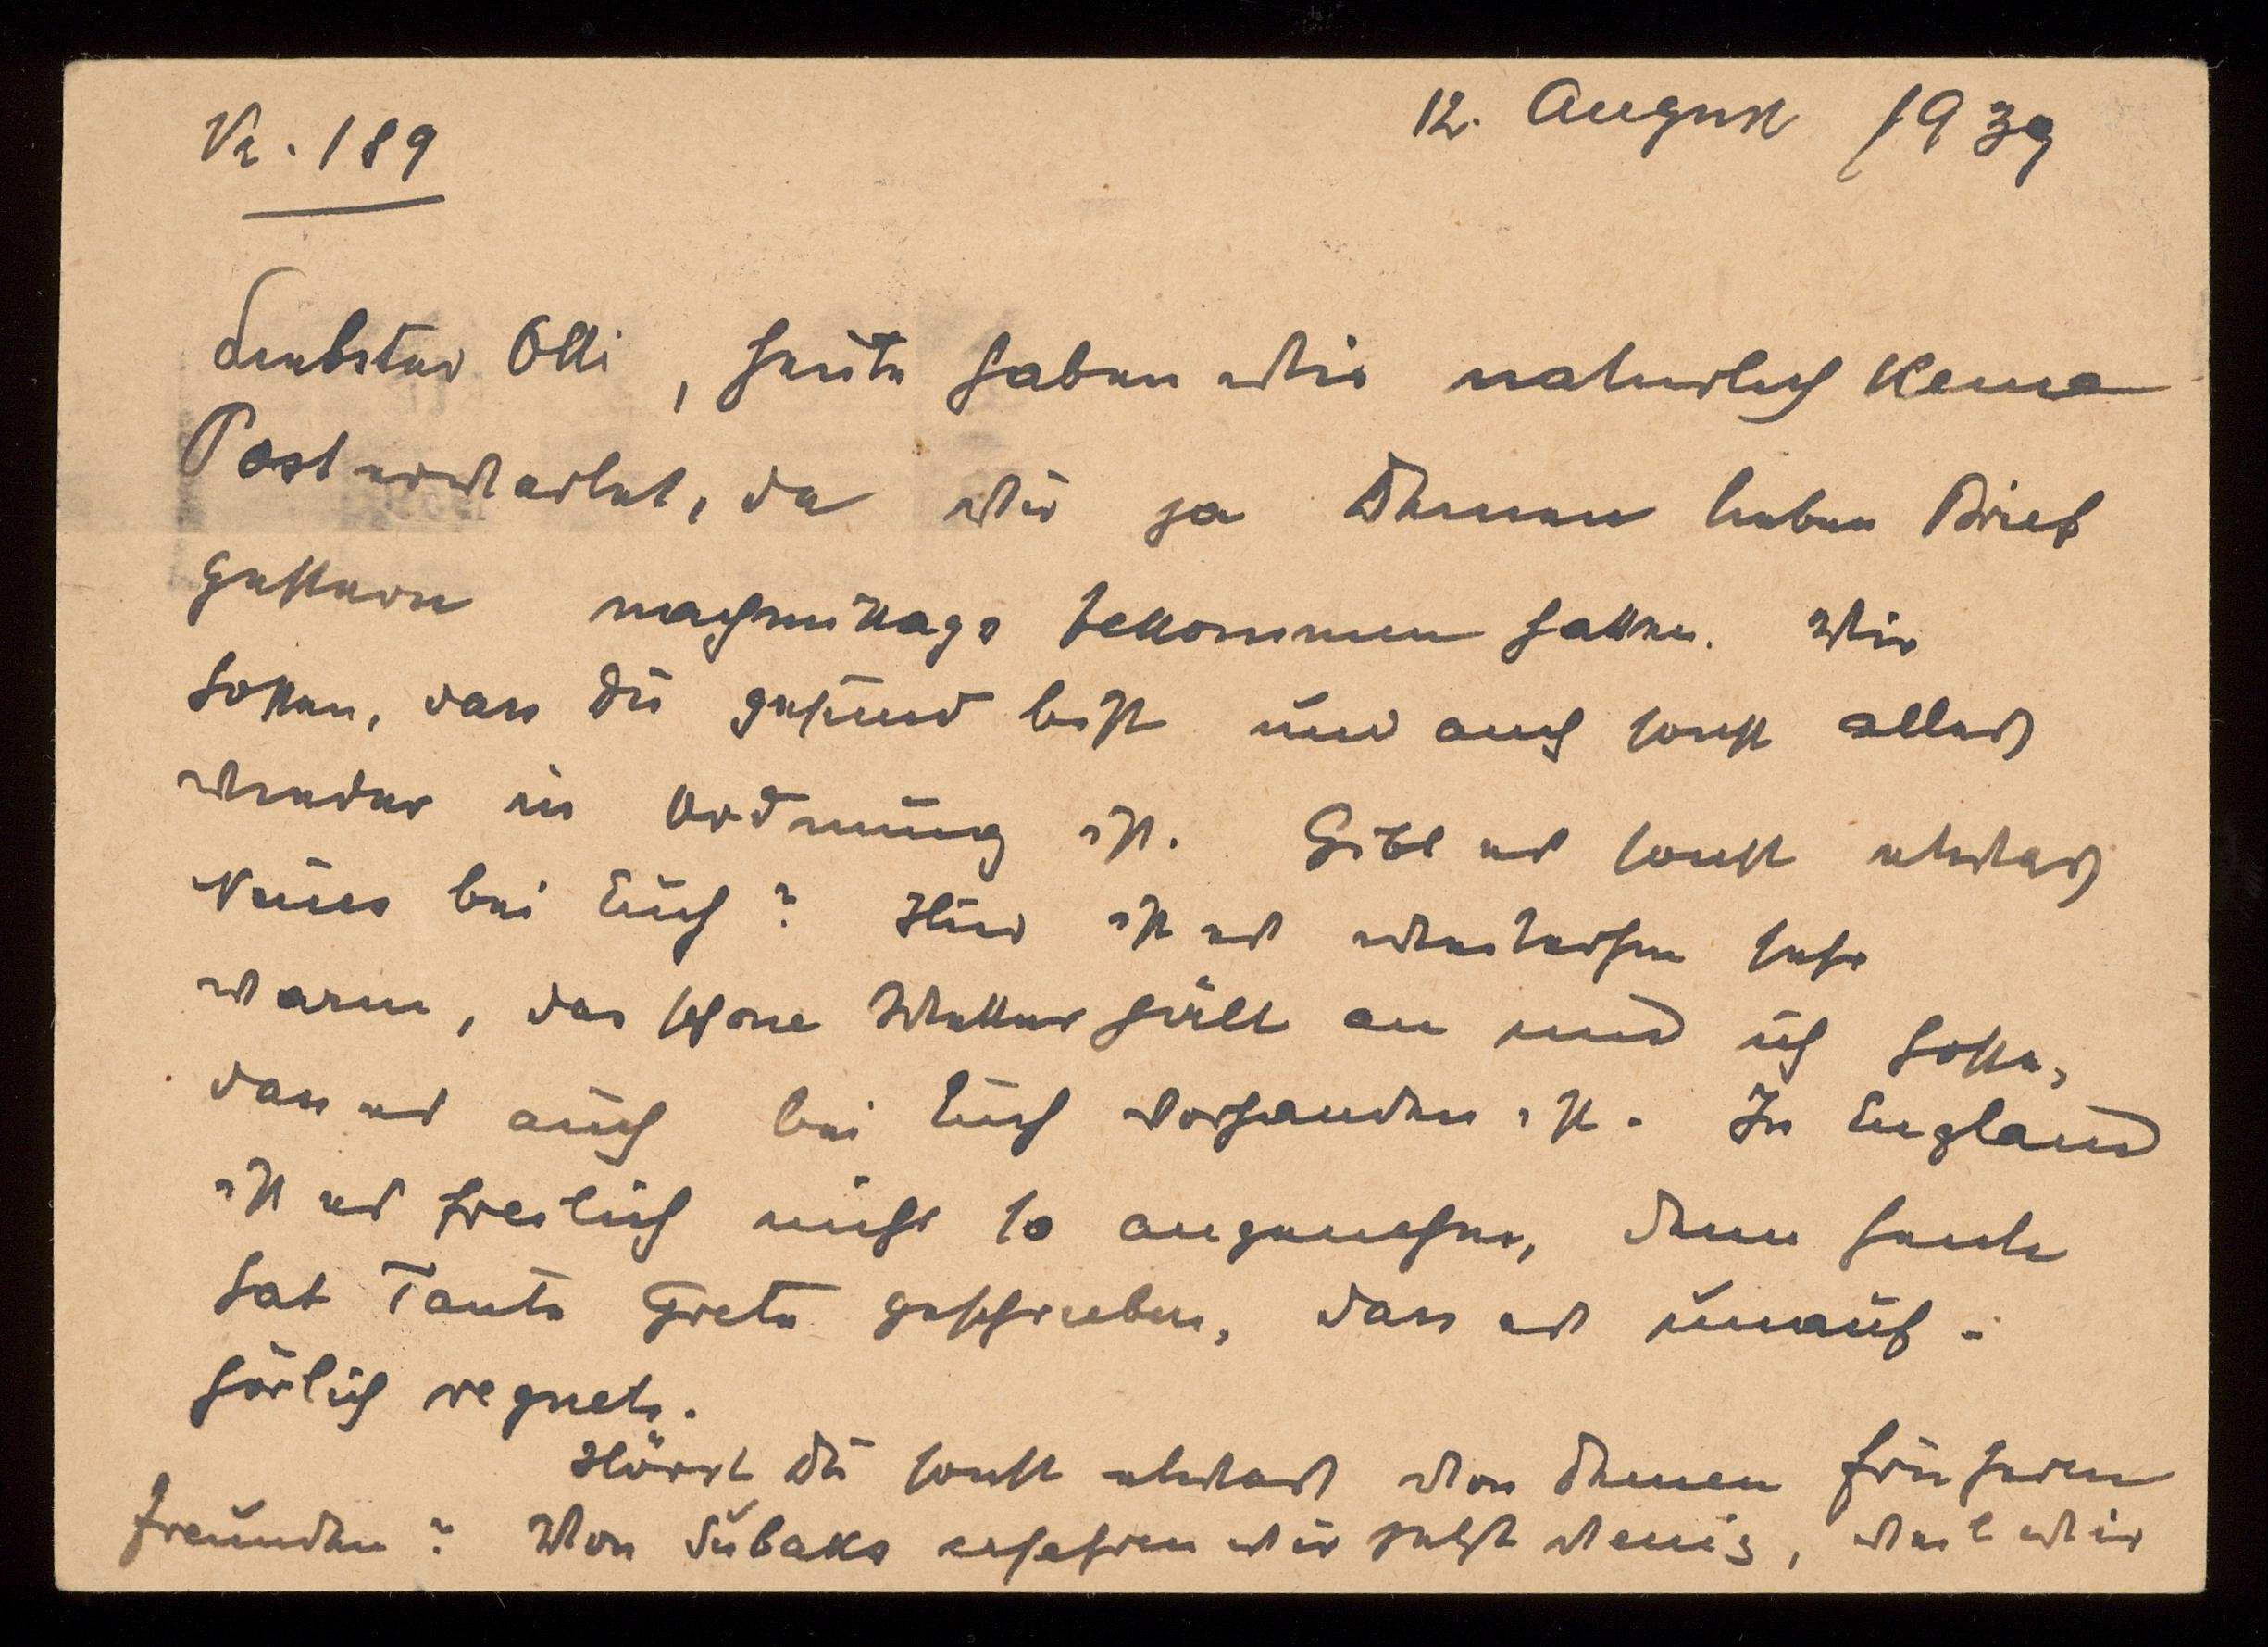 Nr. 189
12. August 1939
Liebster Olli, heute haben wir natürlich keine
Post erwartet, da wir ja Deinen lieben Brief
gestern nachmittags bekommen hatten. Wir
hoffen, dass Du gesund bist und auch sonst alles
wieder in Ordnung ist. Gibt es sonst etwas
Neues bei Euch? Hier ist es weiterhin sehr
warm, das schöne Wetter hält an und ich hoffe,
dass es auch bei Euch vorhanden ist. In England
ist es freilich nicht so angenehm, denn heute
hat Tante Grete geschrieben, dass es unauf-
hörlich regnet.
Hörst Du sonst etwas von Deinen früheren
Freunden? Von erfahren wir jetzt wenig, weil wir